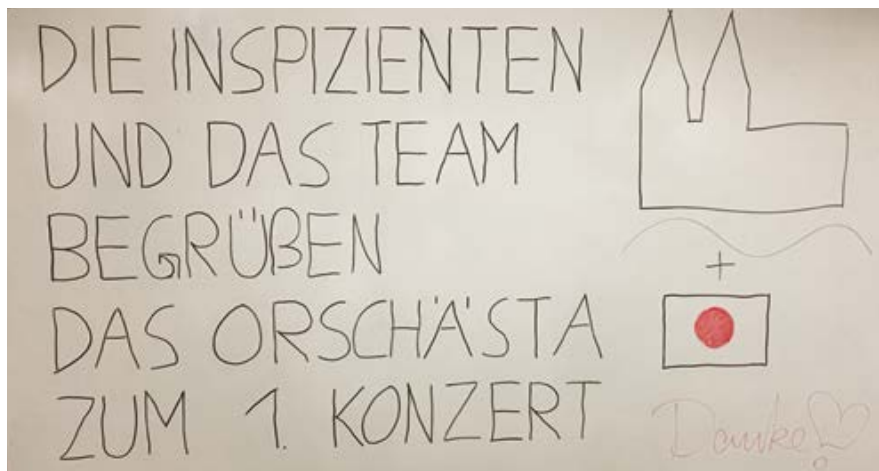 DIE INSPIZIENTEN
UND DAS TEAM
BEGRÜßEN
DAS ORSCHÄSTA
ZUM 1. KONZERT
+
Danke!